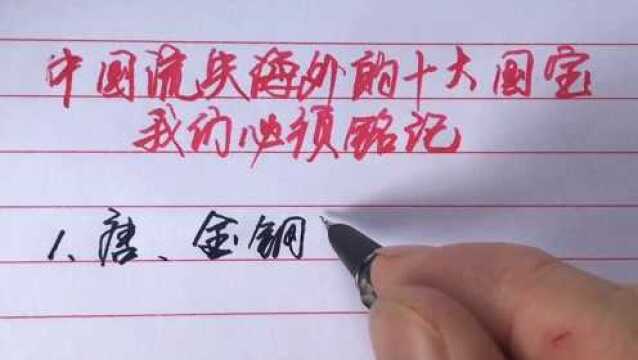 中国流失海外的十大国宝
我们必须铭记
1、唐、金铜